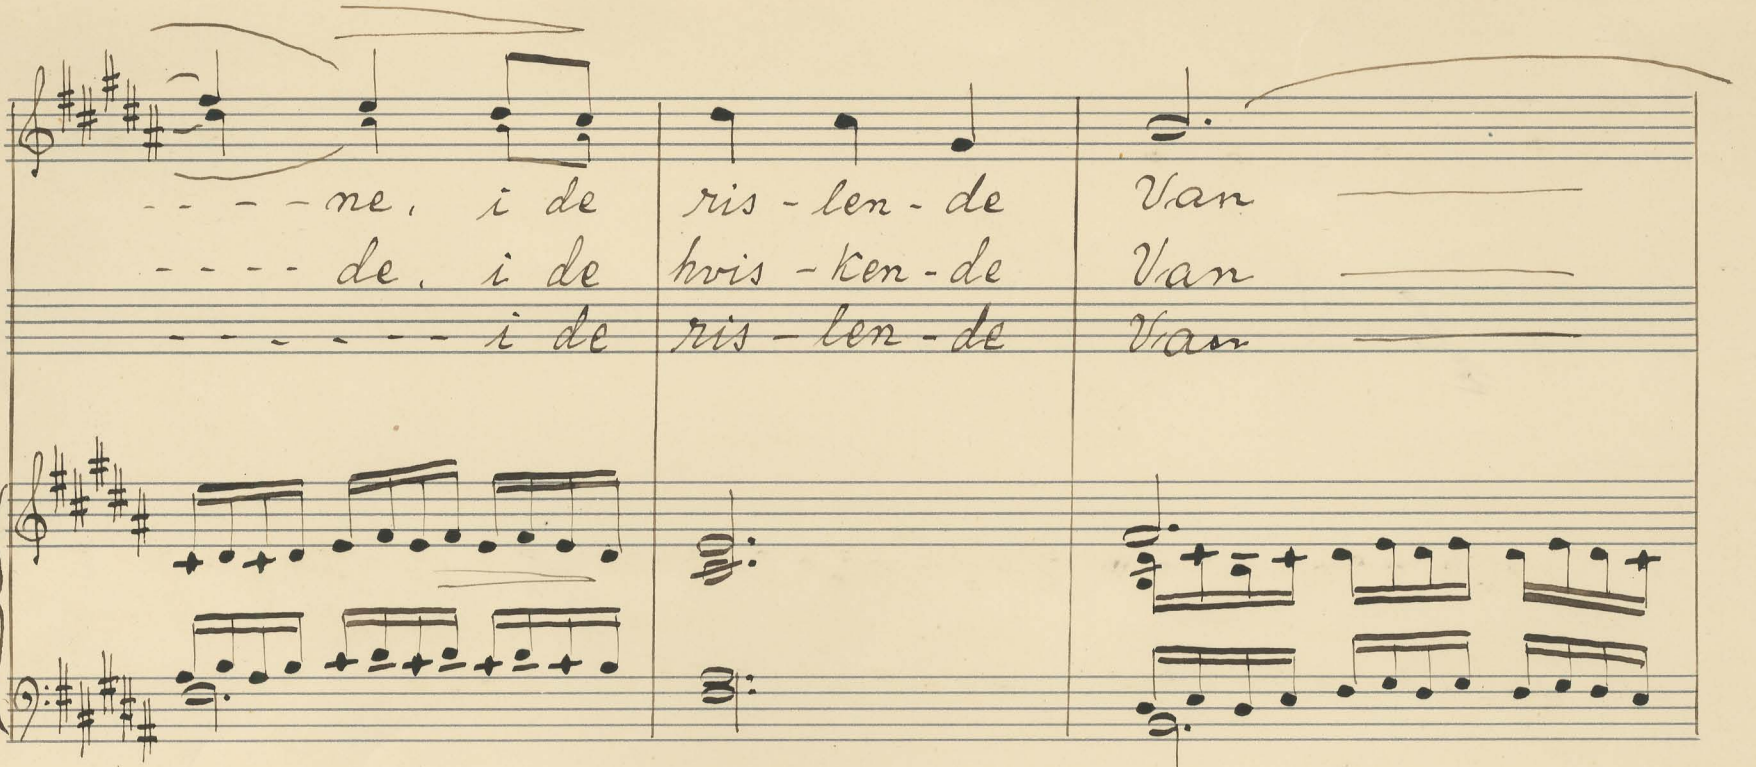 - - - - ne, i de ris - len - de Van
- - - - de, i de hvis - ken - de Van
- - - - - - i de ris - len - de Van